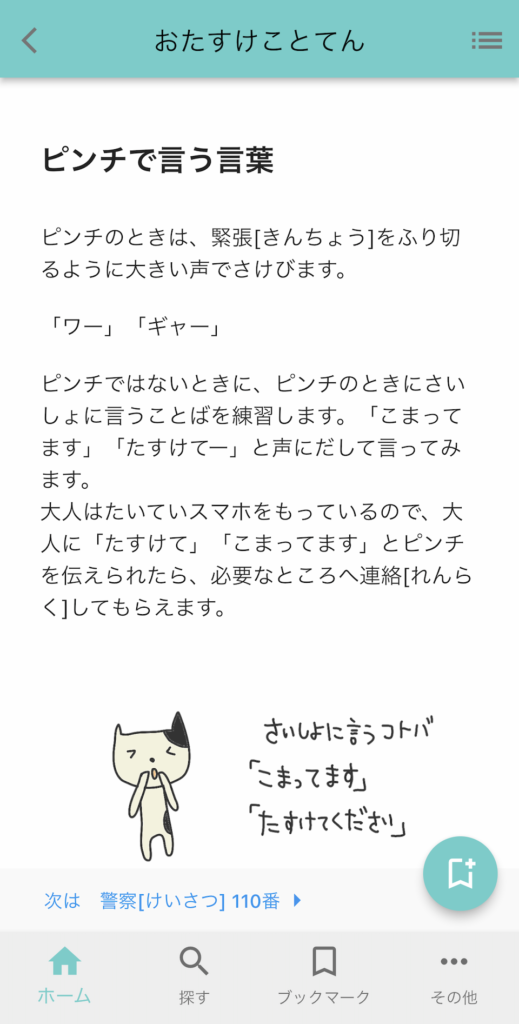 おたすけことてん
ピンチで言う言葉
ピンチのときは、緊張[きんちょう]をふり切
るように大きい声でさけびます。
「ワー」「ギャー」
ピンチではないときに、ピンチのときにさい
しょに言うことばを練習します。「こまって
ます」「たすけてー」と声にだして言ってみ
ます。
大人はたいていスマホをもっているので、大
人に「たすけて」「こまってます」とピンチ
を伝えられたら、必要なところへ連絡[れんら
く]してもらえます。
さいしょに言うコトバ
「こまってます」
「たすけてください」
次は　警察[けいさつ] 110番
ホーム
探す
ブックマーク
その他